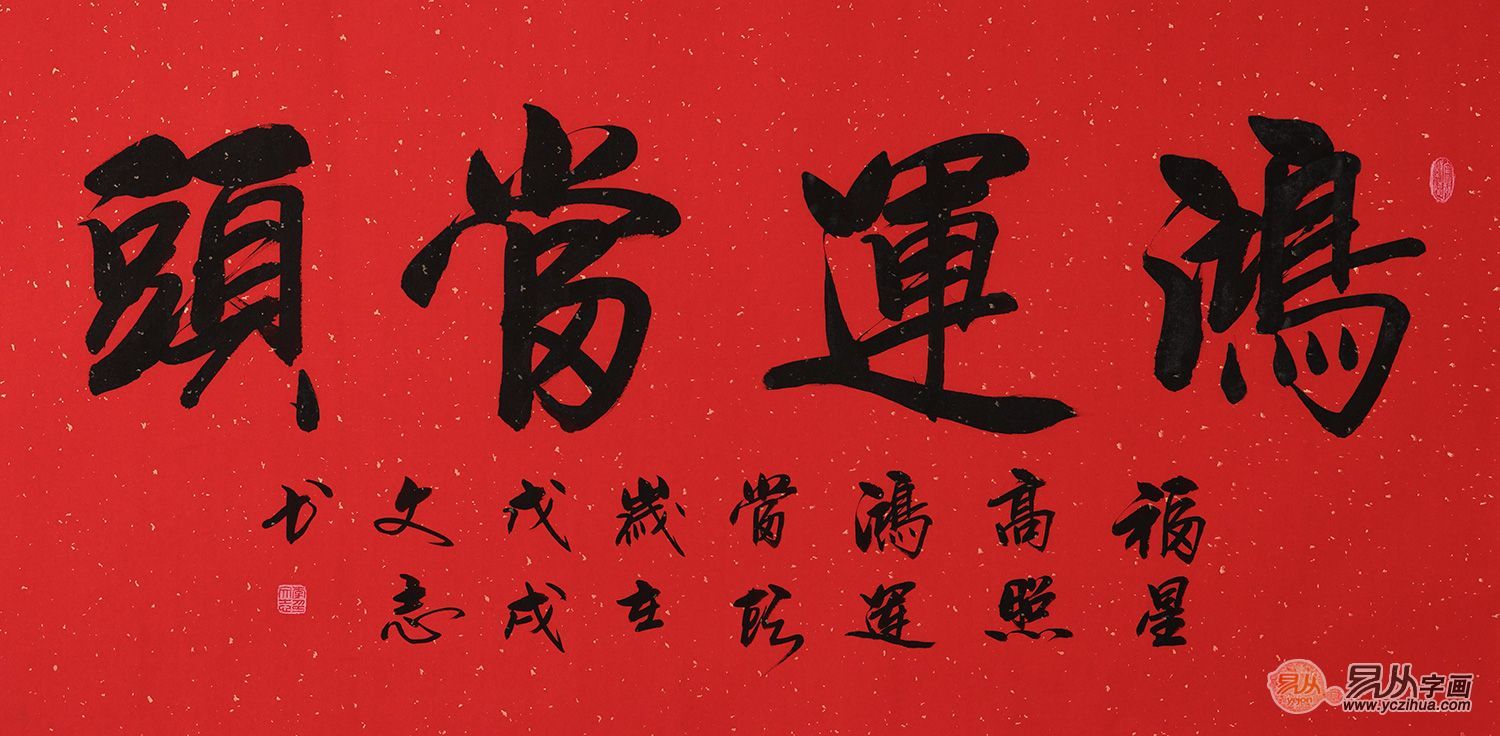 鴻運當頭
福星
高照
鴻運
當頭
歲在
戊戌
文志
书
易从字画
www.yczihua.com